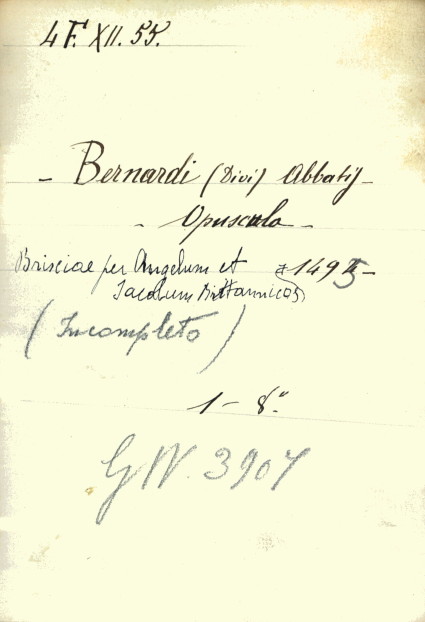 4 F. XII. 55.
- Bernardi (Divi) Abbatis -
- Opuscula -
Brisciae per Angelum et 1495 -
Jacobum Brittannicos
(Incompleto)
1 - 8.º
GW. 3907